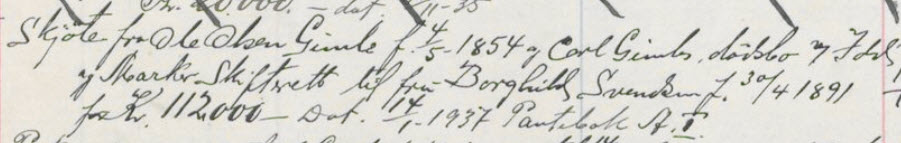 Kr. 20.000.— dat. /11-35
Skjöte fra Ole Olsen Gimle f. 4/5 1854 og Carl Gimles dödsbo v/
og Marker Skifterett til fru Borghild Svendsen f. 30/4 1891
for Kr. 112.000— Dat. 14/1-1937 Pantebok A. I.